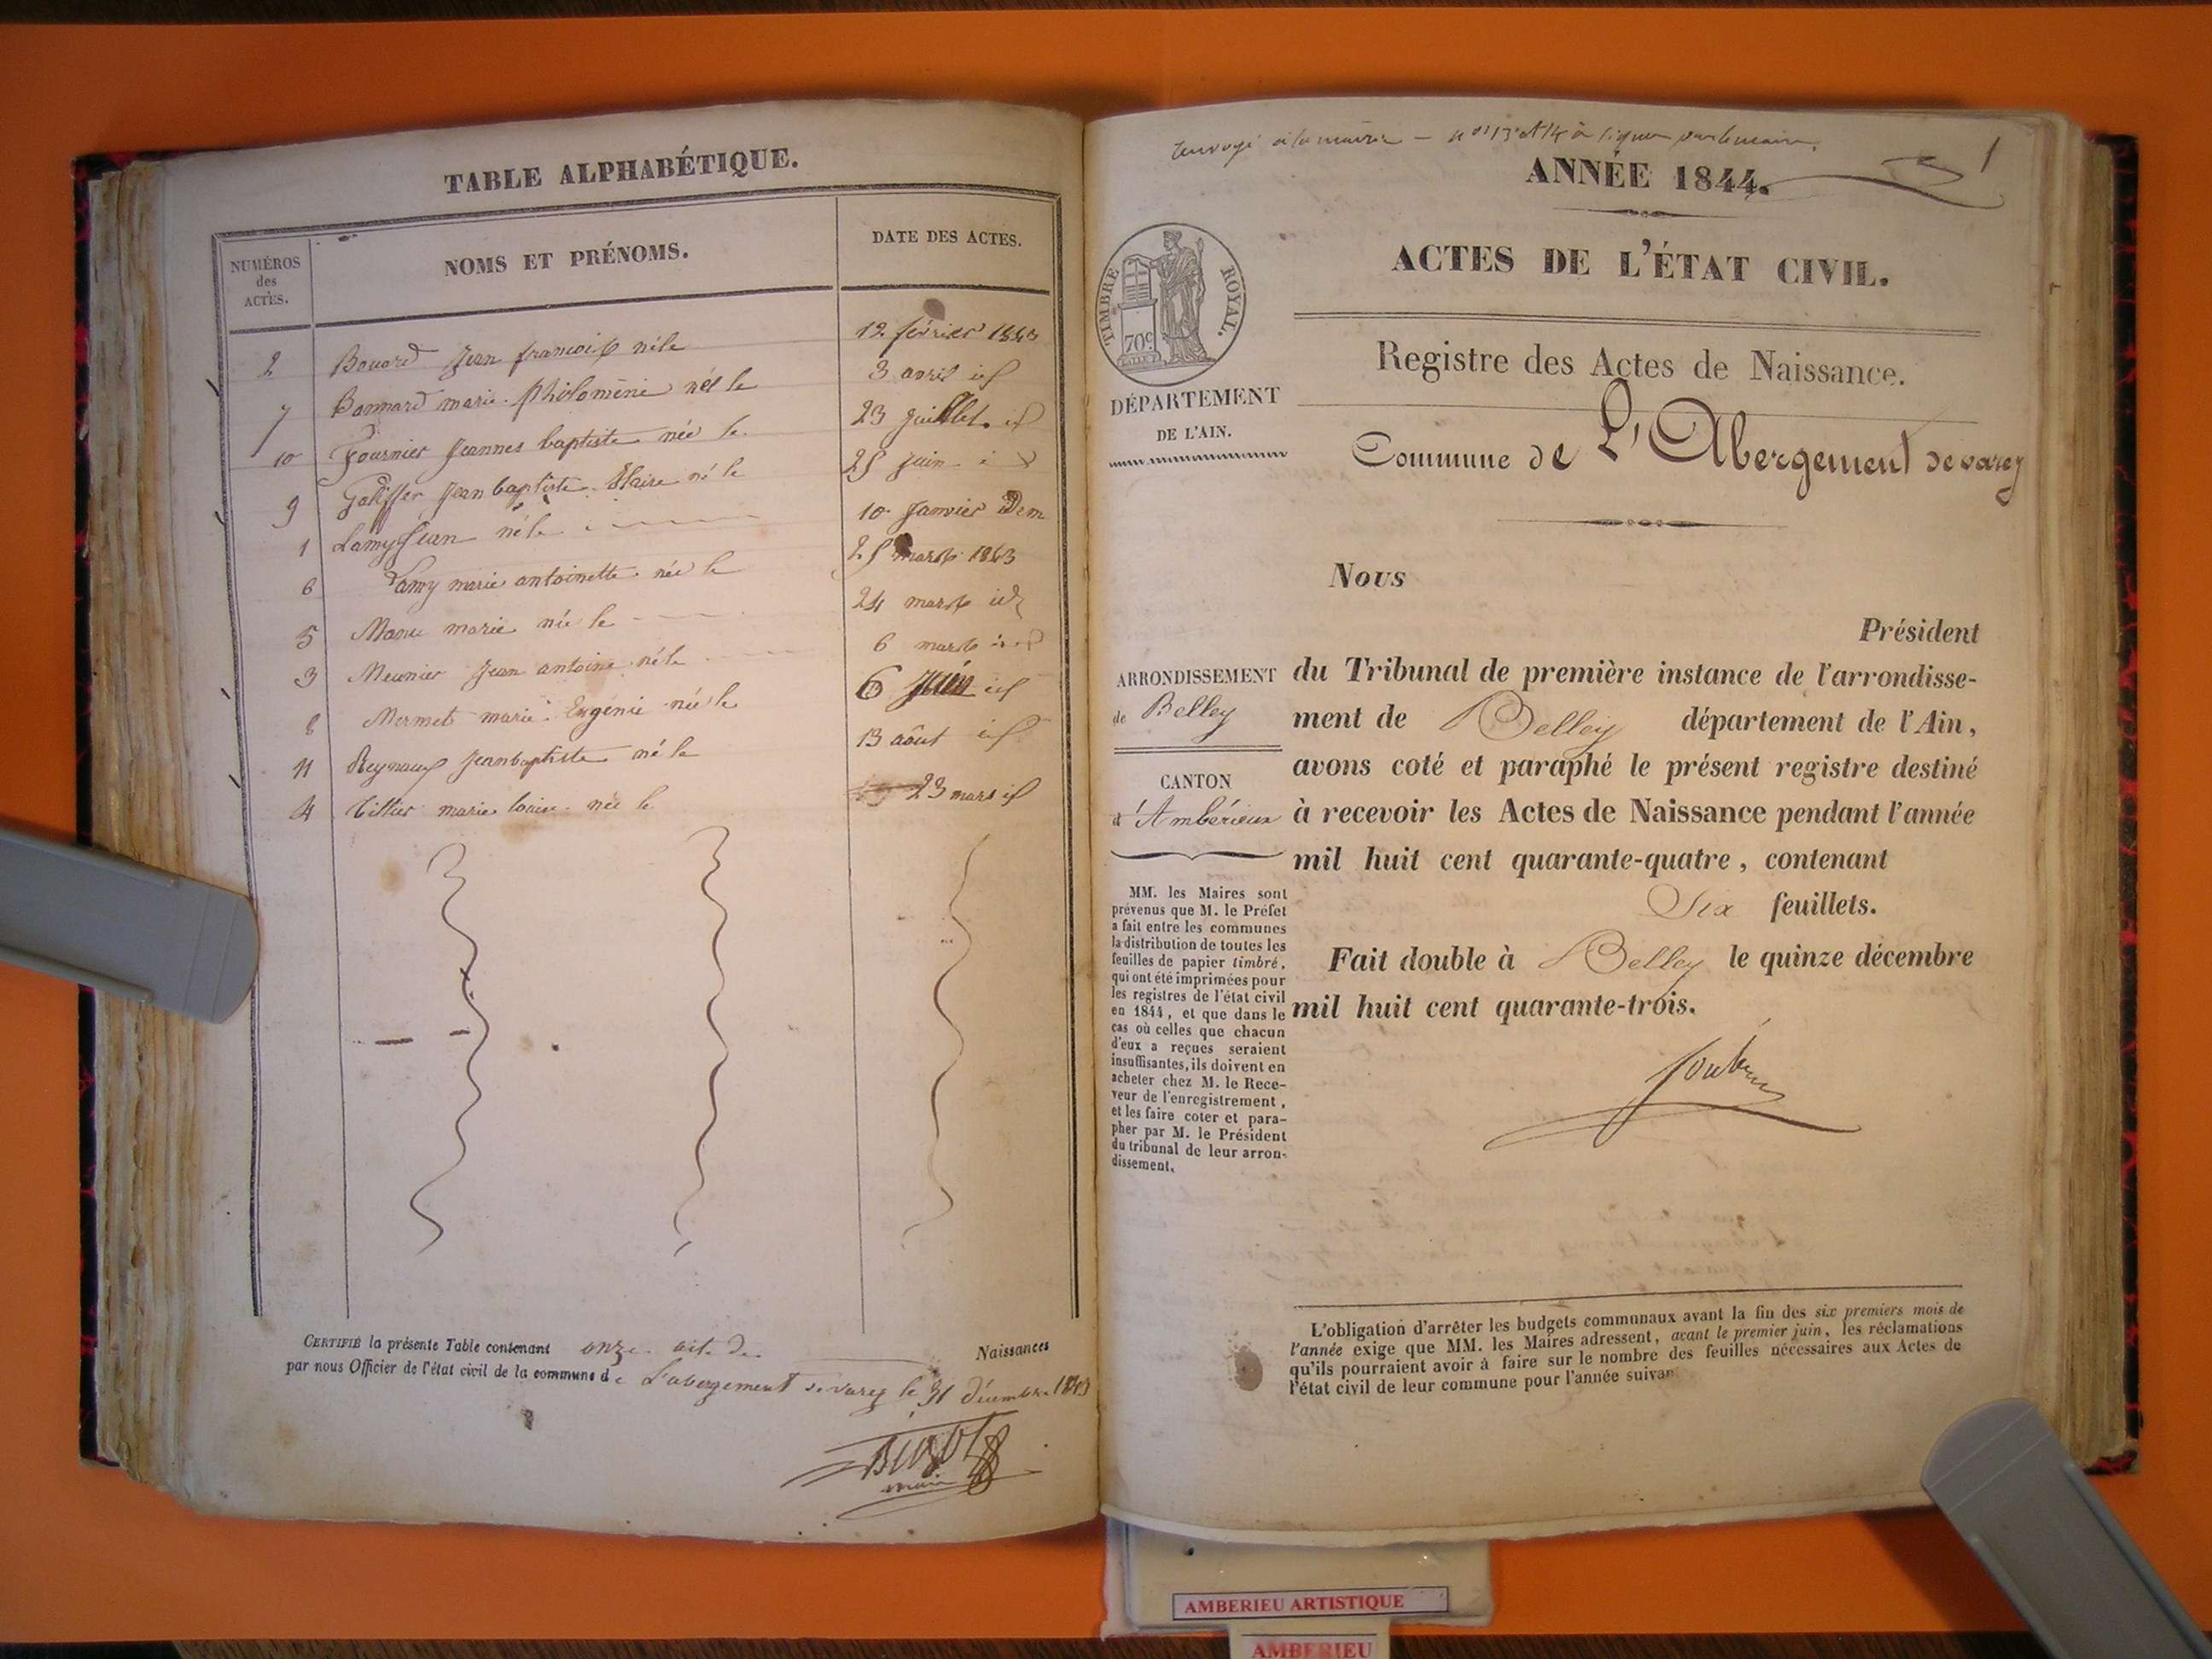 TABLE ALPHABÉTIQUE.
NUMÉROS
des
ACTES.
NOMS ET PRÉNOMS.
DATE DES ACTES.
2 Bouard Jean francois né le 12 février 1843
7 Bonnard marie philoméne née le 3 avril id
10 Fournier Jeannes baptiste née le 23 Juillet id
9 Jean baptiste né le 25 Juin
1 Lamy Jean né le 10 Janvier idem
6 Lamy marie antoinette née le 25 mars 1843
5 marie née le 24 mars id
3 Meunier Jean antoine né le 6 mars
8 Mermet marie Eugénie née le 6 Juin id
11 Reynaud Jean baptiste né le 13 août id
4 Tillier marie louise née le 23 mars id
CERTIFIÉ la présente Table contenant onze Naissances
par nous Officier de l'état civil de la commune de L'abergement de varey le 31 décembre 1843
maire
ANNÉE 1844.
1
ACTES DE L'ÉTAT CIVIL.
TIMBRE ROYAL.
70c
Registre des Actes de Naissance.
DÉPARTEMENT
DE L'AIN.
Commune de L'Abergement de varey
Nous
Président
ARRONDISSEMENT
de Belley
CANTON
d'Ambérieux
du Tribunal de première instance de l'arrondisse-
ment de Belley département de l'Ain,
avons coté et paraphé le présent registre destiné
à recevoir les Actes de Naissance pendant l'année
mil huit cent quarante-quatre, contenant
Six feuillets.
Fait double à Belley le quinze décembre
mil huit cent quarante-trois.
MM. les Maires sont
prévenus que M. le Préfet
a fait entre les communes
la distribution de toutes les
feuilles de papier timbré,
qui ont été imprimées pour
les registres de l'état civil
en 1844, et que dans le
cas où celles que chacun
d'eux a reçues seraient
insuffisantes, ils doivent en
acheter chez M. le Rece-
veur de l'enregistrement,
et les faire coter et para-
pher par M. le Président
du tribunal de leur arron-
dissement.
L'obligation d'arrêter les budgets communaux avant la fin des six premiers mois de
l'année exige que MM. les Maires adressent, avant le premier juin, les réclamations
qu'ils pourraient avoir à faire sur le nombre des feuilles nécessaires aux Actes de
l'état civil de leur commune pour l'année suivan
AMBERIEU ARTISTIQUE
AMBERIEU